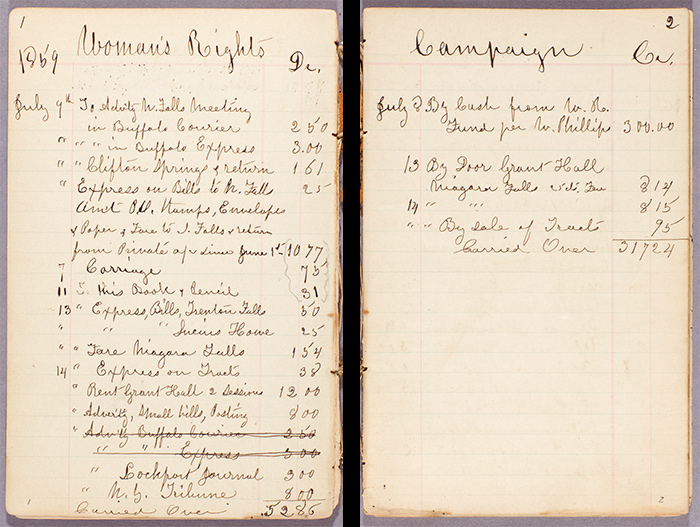 1
1859 Woman's Rights Dr.
July 9th To Advtg N. Falls Meeting
in Buffalo Courier 2 50
" " " in Buffalo Express 3.00
" " Clifton Springs & return 1 61
" Express on Bills to N. Falls 25
Amt Pd. Stamps, Envelopes
& Paper & Fare to S. Falls & return
from Private a/c since June 1st 10 77
7 Carriage 75
11 " This Book & Pencil 31
13 " Express, Bills, Trenton Falls 50
" " " Lucius Howe 25
" Fare Niagara Falls 1 54
14 " Express on Tracts 38
" Rent Grant Hall 2 Sessions 12 00
" Advtg, Small bills, Posting 8 00
" Advtg Buffalo Courier 2 50
" " Express 3 00
" Lockport Journal 3 00
" N.Y. Tribune 8 00
Carried Over 52 86
1
2
Campaign Cr.
July By Cash from W. R.
Fund per W. Phillip 300.00
13 By Door Grant Hall
Niagara Falls 8 14
14 " " 8 15
" " By Sale of Tracts 95
Carried Over 317 24
2